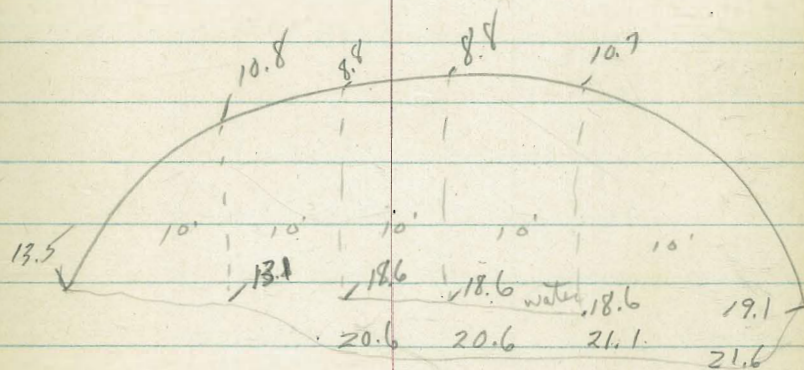 10.8 8.8 8.8 10.7
10' 10' 10' 10' 10'
13.5
13.1 18.6 18.6 water 18.6 19.1
20.6 20.6 21.1 21.6